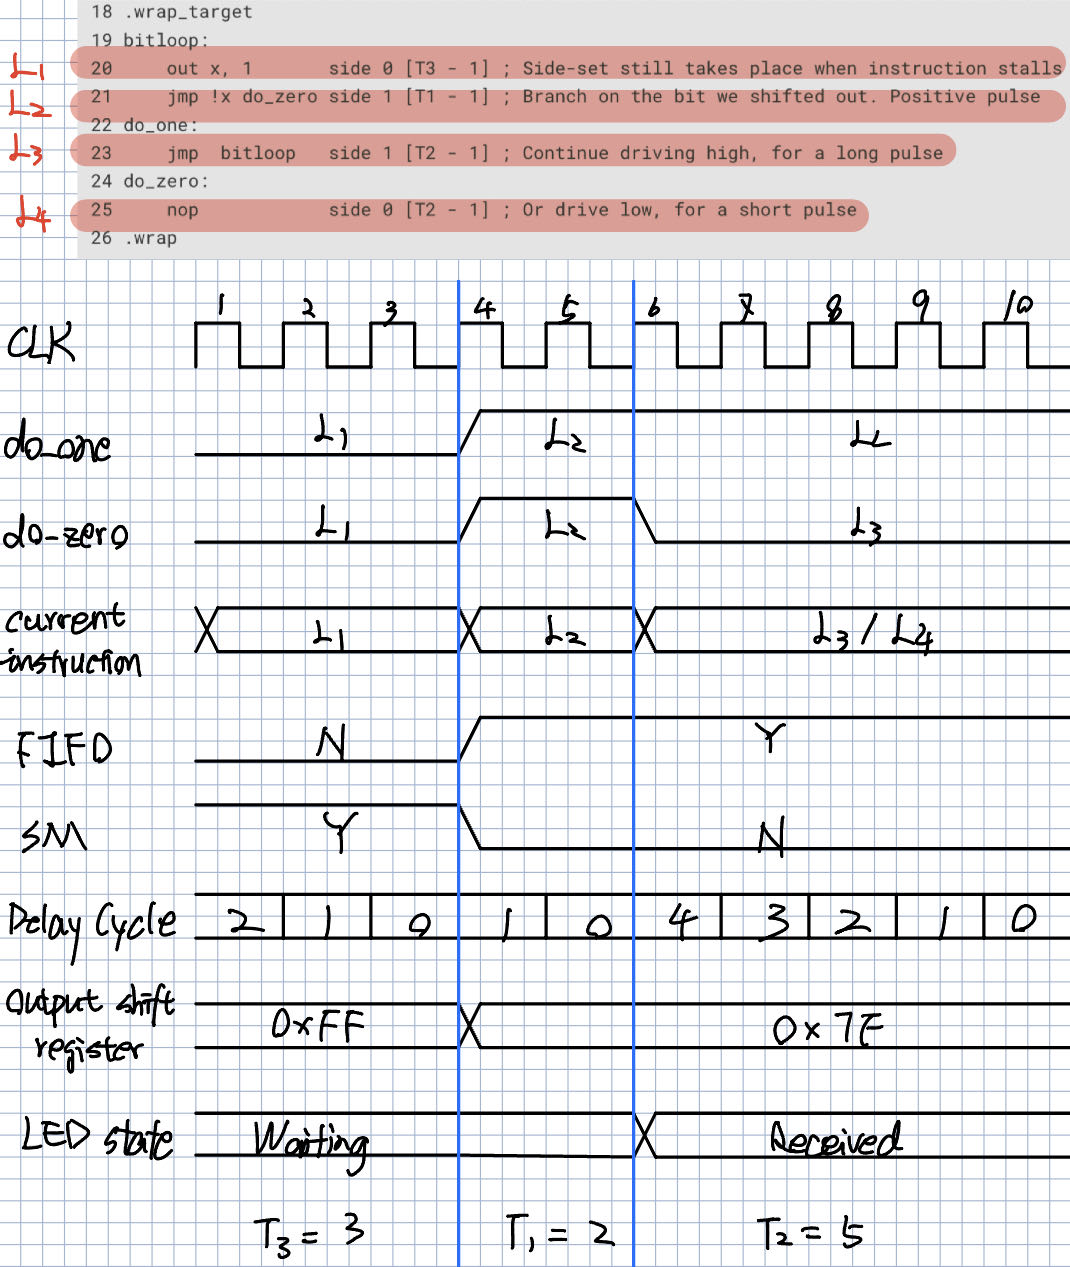 18 .wrap_target
19 bitloop:
L1 20 out x, 1 side 0 [T3 - 1] ; Side-set still takes place when instruction stalls
L2 21 jmp !x do_zero side 1 [T1 - 1] ; Branch on the bit we shifted out. Positive pulse
22 do_one:
L3 23 jmp bitloop side 1 [T2 - 1] ; Continue driving high, for a long pulse
24 do_zero:
L4 25 nop side 0 [T2 - 1] ; Or drive low, for a short pulse
26 .wrap
1 2 3 4 5 6 7 8 9 10
CLK
do_one L1 L2
do-zero L1 L2 L3
current
instruction L1 L2 L3 / L4
FIFO N Y
SM Y N
Delay Cycle 2 1 0 1 0 4 3 2 1 0
Output shift
register 0xFF 0x7F
LED state Waiting Received
T3 = 3 T1 = 2 T2 = 5